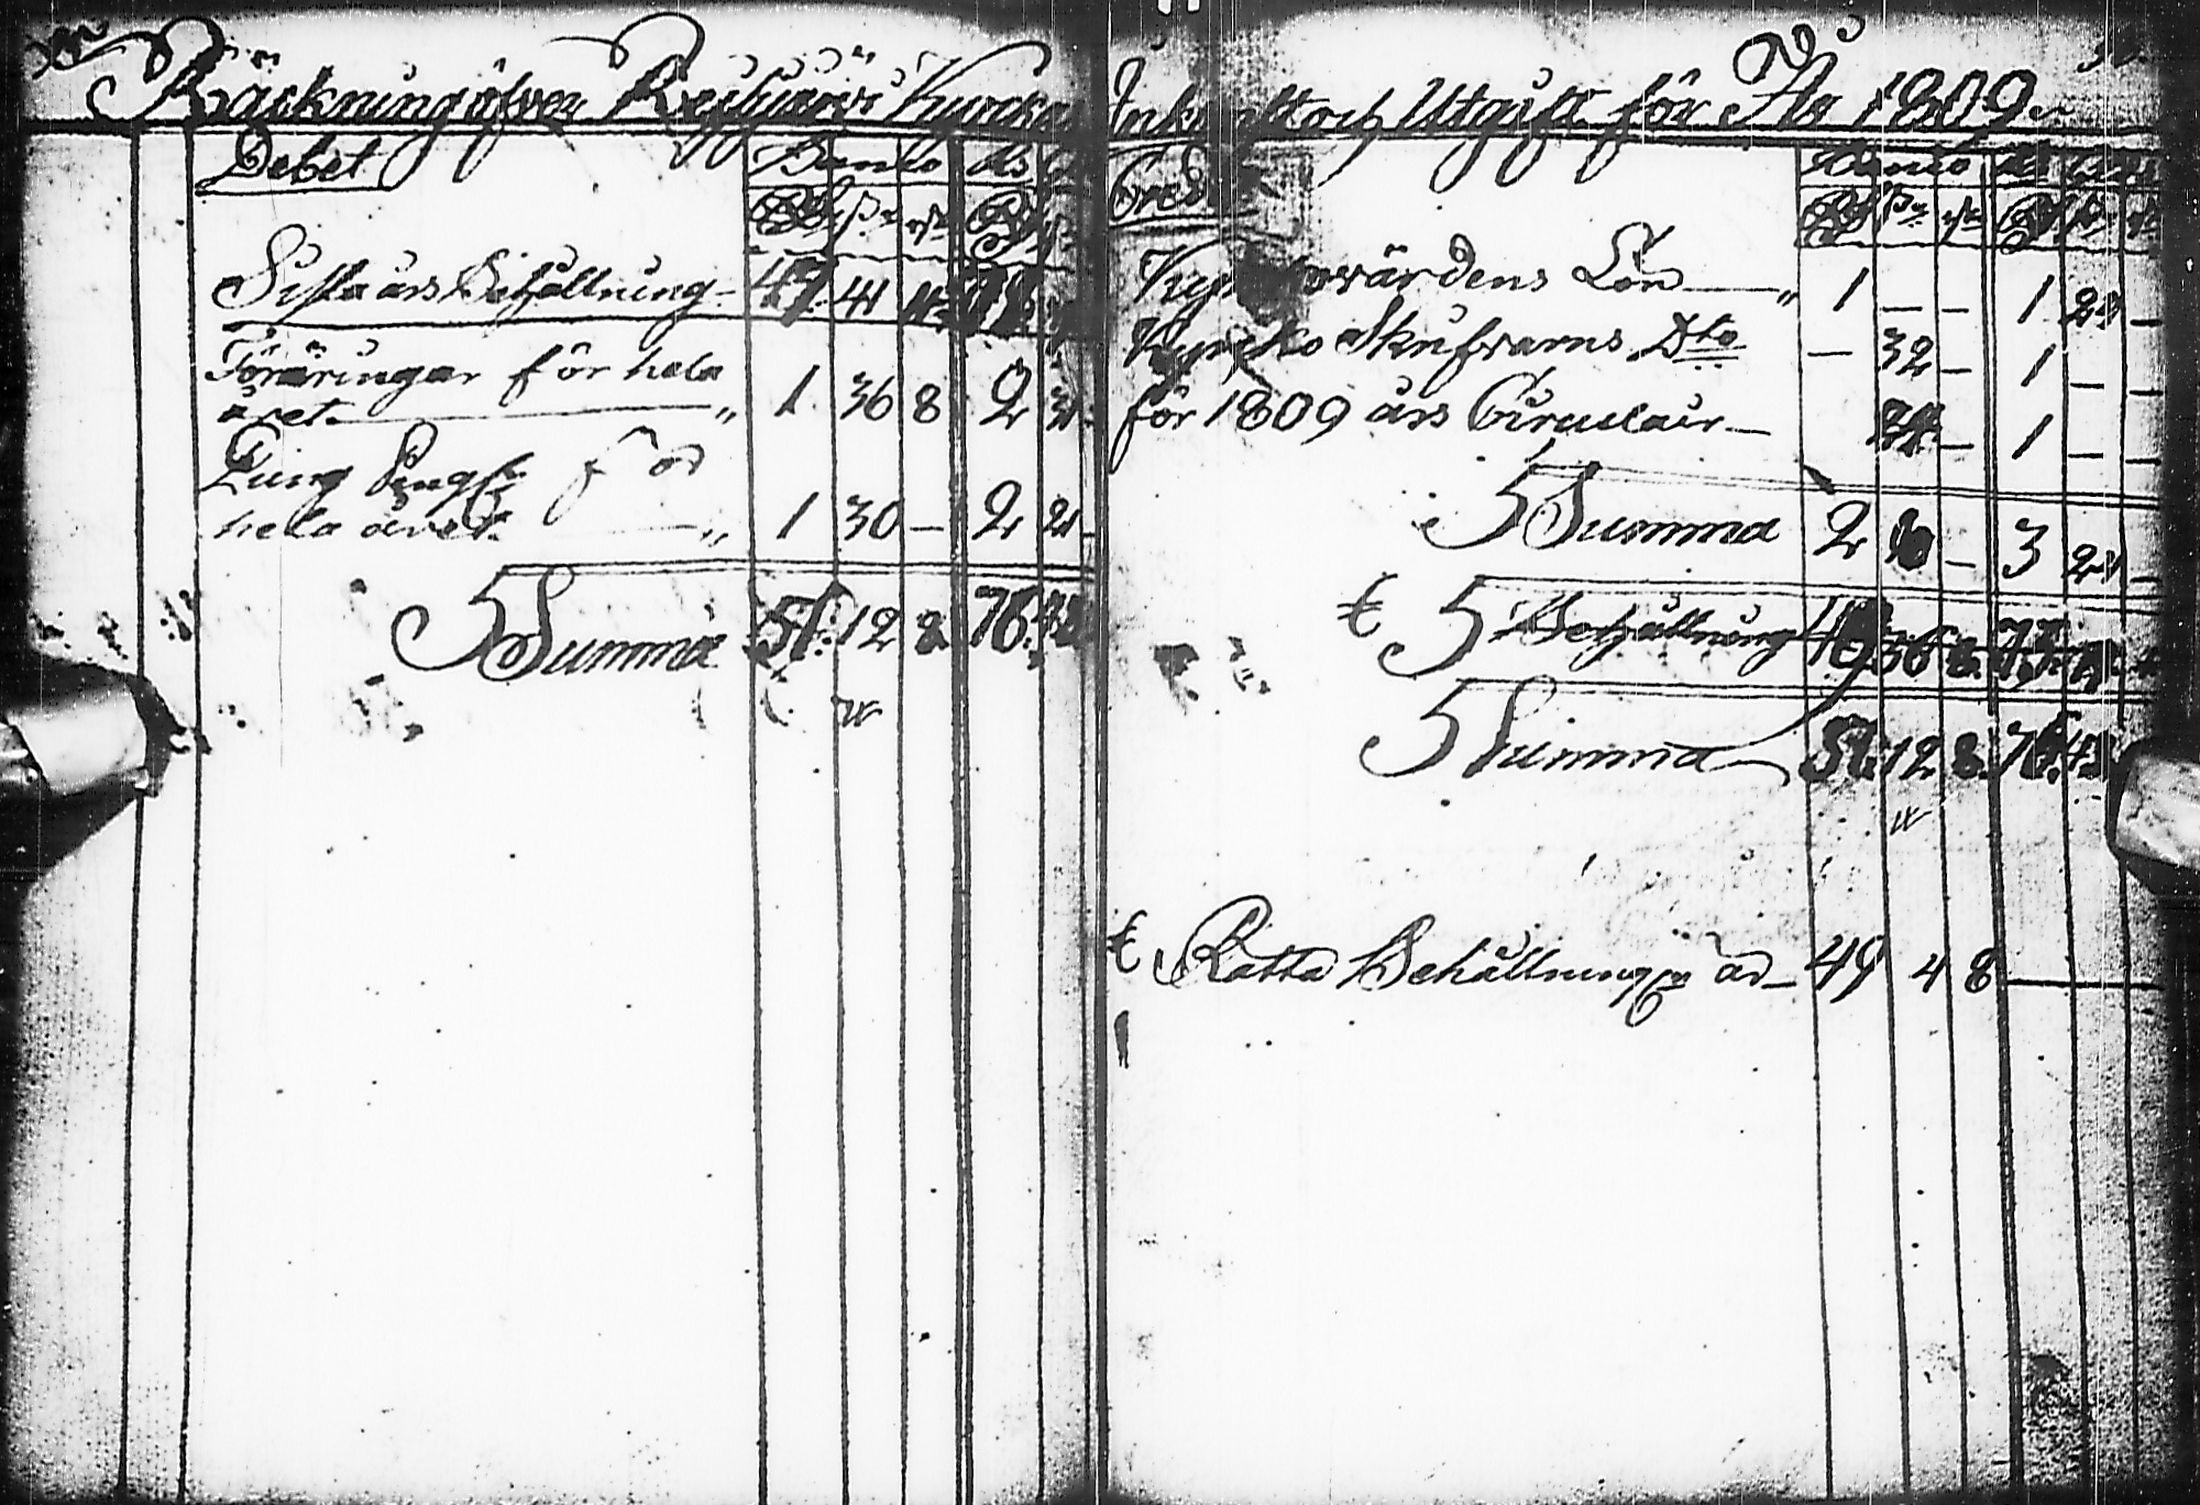 Räckning öfver Kyrcko
Inkomst och Utgift för År 1809
Debet Banco Rs
Rd ß rst Rd ß
Sista års Behållning 47 41
Föräringar för hela
året 1 36 8 2
Pung Peng för
hela året 1 30 — 2 24 —
Summa 51 12 8 76 42
Credit Banco
Rd ß rst Rd ß
Kyrckovärdens Lön 1 — — 1 24 —
Kyrcko Skrifvarns Dto — 32 — 1 — —
för 1809 års Circulair — 1 — —
Summa 2 — 3 24 —
Behållning 36 8 73
Summa 51 12 8 76 42
Rätta Behållningen är 49 4 8